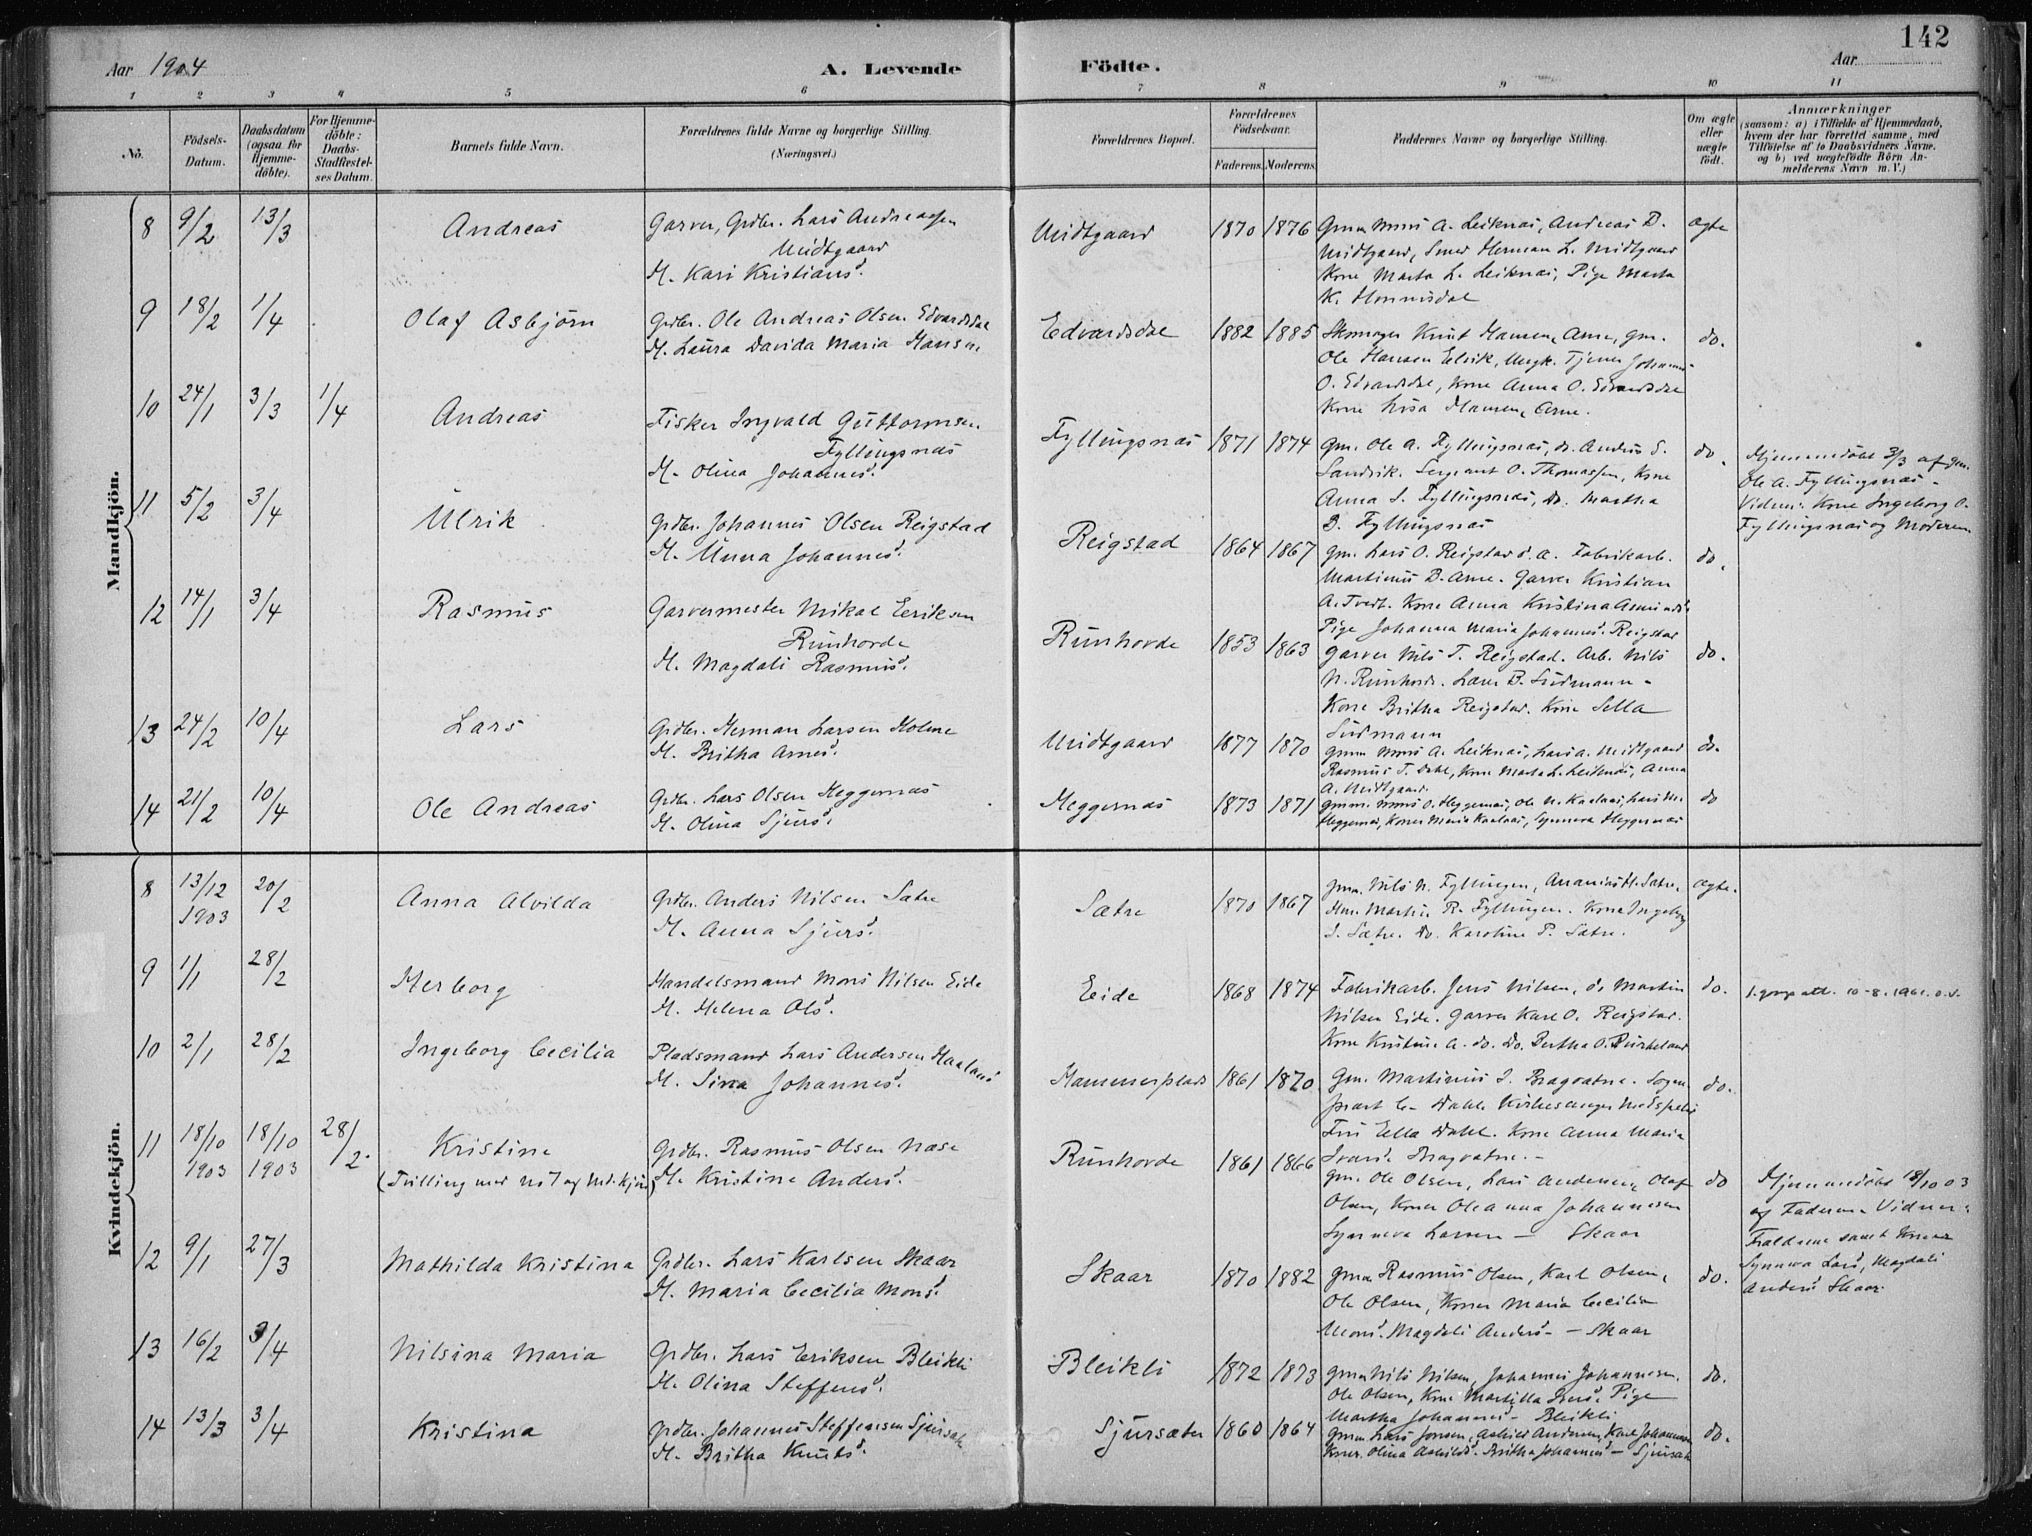 142
Aar 1904
A. Levende
Födte.
Aar
1 2 3 4 5 6 7 8 9 10 11
Nö.
Födsels-Datum.
Daabsdatum (ogsaa for Hjemme-döbte).
For Hjemme-döbte: Daabs-Stadfæstel-ses Datum.
Barnets fulde Navn.
Forældrenes fulde Navne og borgerlige Stilling. (Næringsvei.)
Forældrenes Bopæl.
Forældrenes Födselsaar.
Faderens. Moderens.
Faddernes Navne og borgerlige Stilling.
Om ægte eller uægte födt.
Anmærkninger
(saasom: a) i Tilfælde af Hjemmedaab, hvem der har forrettet samme, med Tilföielse af to Daabsvidners Navne. og b) ved uægtefödte Börn An-melderens Navn m. V.)
Mandkjön.
8 9/2 13/3 Andreas
Garver, Grdbr. Lars Andreassen
Midtgaard
H. Kari Kristiansd.
Midtgaard 1870 1876
Gmm Mons A. Leiknas, Andreas D.
Midtgaard, Smed Herman L. Midtgaard
Kone Marta L. Leiknas, Pige Marta
K. Hommsdal
ægte
9 18/2 1/4 Olaf Asbjörn
Grdbr. Ole Andreas Olsen Edvardsdal
H. Laura Davida Maria Hansen
Edvardsdal 1882 1885
Skomager Knut Hansen, Arne, gm.
Ole Hansen Eelvik, Ungk. Tjener Johannes
O. Edvardsdal, Kone Anna O. Edvardsdal
Kone Lisa Hansen, Arne.
do.
10 24/1 3/3 1/4 Andreas
Fisker Ingvald Guttormsen
Fyllingsnæs
H. Olina Johannesd.
Fyllingsnæs 1871 1874
Gm. Ole A. Fyllingsnæs, do. Andreas S.
Sandvik. Sergeant O. Thomassen, Kone
Anna S. Fyllingsnæs, Do. Martha
B. Fyllingsnæs
do.
Hjemmedöbt 3/3 af gm.
Ole A. Fyllingsnæs.
Vidner: Kone Ingeborg O.
Fyllingsnæs og Moderen
11 5/2 3/4 Ulrik
Grdbr. Johannes Olsen Reigstad
H. Unna Johannesd.
Reigstad 1864 1867
Gm. Lars O. Reigstad. d. a. Fabrikarb.
Martinus B. Arne. Garver Kristian
A. Tvedt. Kone Anna Kristina Asmundsd
Pige Johanna Maria Johannesd. Reigstad
do.
12 14/1 3/4 Rasmus
Garvermester Mikal Eriksen
Runhovde
H. Magdali Rasmusd.
Runhovde 1853 1863
Garver Nils T. Reigstad. Arb. Nils
N. Runhovde. Lærer B. Sudmann
Kone Britha Reigstad. Kone Sella
Sudmann
do.
13 24/2 10/4 Lars
Grdbr. Herman Larsen Holme
H. Britha Arnesd.
Midtgaard 1877 1870
Gmm Mons A. Leiknas, Lars A. Midtgaard
Rasmus T. Dahl, Kone Marta L. Leiknas, Anna
A. Midtgaard.
do.
14 21/2 10/4 Ole Andreas
Grdbr. Lars Olsen Heggernæs
H. Olina Sjursd.
Heggernæs 1873 1871
Gmm. Mons O. Heggernæs, Ole N. Kaalaas, Lars M.
Heggernæs, Koner Maria Kaalaas, Synneva Heggernæs
do
Kvindekjön.
8 13/12 1903 20/2 Anna Alvilda
Grdbr. Anders Nilsen Sætre
H. Anna Sjursd.
Sætre 1870 1867
Gmm. Nils N. Fyllingen, Ananias H. Sætre,
Martin R. Fyllingen. Kone Ingeborg
S. Sætre. Do. Karoline P. Sætre.
ægte.
9 1/1 28/2 Herborg
Handelsmand Mons Nilsen Eide
H. Helena Olsd.
Eide 1868 1874
Fabrikarb. Jens Nilsen, do Martin
Nilsen Eide. Garver Karl O. Reigstad.
Kone Kristine A. do. Do. Bertha O. Birkeland
do.
10 2/1 28/2 Ingeborg Cecilia
Pladsmand Lars Andersen Haaland
H. Sina Johannesd.
Hammerplads 1861 1870
Gm. Martinus I. Bragvatne. Sogne
præst C. Dahl. Kirkesanger
Fru Ella Dahl. Kone Anna Maria
Ivarsd. Bragvatne.
do.
11 18/10 1903 18/10 1903 28/2 Kristine
(Tvilling med No 7 af Mdkjön)
Grdbr. Rasmus Olsen Næse
H. Kristine Andersd.
Runhovde 1861 1866
Gm. Ole Olsen, Lars Andersen, Olaf
Olsen, Koner Oleanna Johannesen
Synneva Larsen — Skaar
do
Hjemmedöbt 18/10 03
af Faderen. Vidner:
Fældrene samt Koner
Synneva Larsd, Magdali
Andersd Skaar.
12 9/1 27/3 Mathilda Kristina
Grdbr. Lars Karlsen Skaar
H. Maria Cecilia Monsd.
Skaar 1870 1882
Gmm Rasmus Olsen, Karl Olsen,
Ole Olsen, Koner Maria Cecilia
Monsd. Magdali Andersd. — Skaar
do.
13 16/2 3/4 Nilsina Maria
Grdbr. Lars Eriksen Bleikli
H. Olina Steffensd.
Bleikli 1872 1873
Gmm Nils Nilsen, Johannes Johannesen.
Ole Olsen, Kone Pige
Martha Johannesd. Bleikli
do.
14 13/3 3/4 Kristina
Grdbr. Johannes Steffensen Sjursæt
H. Britha Knutsd.
Sjursæter 1860 1864
Gmm Lars Jonsen, Askild Andersen, Karl Johannesen
Koner. Olina Askildsd. Britha Johannesd — Sjursæt
do.